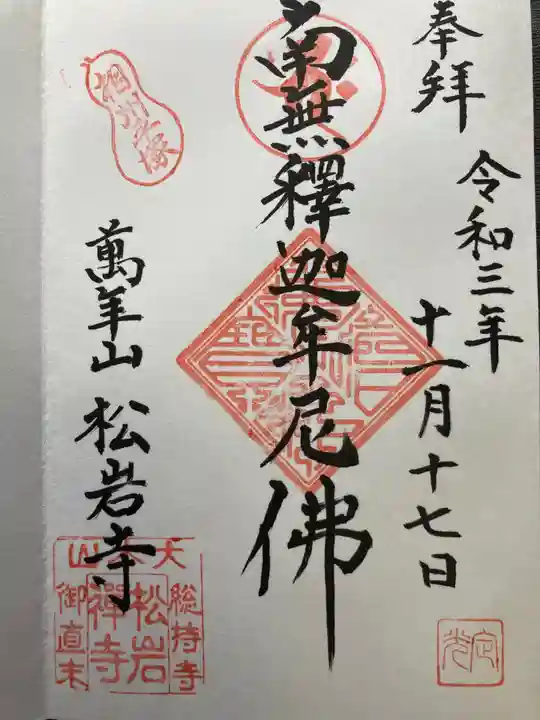 奉拝
令和三年
十一月十七日
南無釋迦牟尼佛
萬年山 松岩寺
大本山
総持寺
御直末
松岩
禅寺